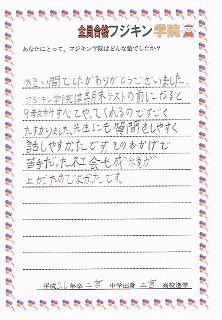 全員合格フジキン学院
あなたにとって、フジキン学院はどんな塾でしたか?
短い間でしたがありがとうございました。
フジキン学院は期末テストの前になると
9教科すべてやってくれるのですごく
たすかりました。先生にも質問をしやすく
話しやすかったです。そのおかげで
苦手だった社会も成績が
上がったのでよかったです。
平成26年卒 二宮 中学出身 二宮 高校進学